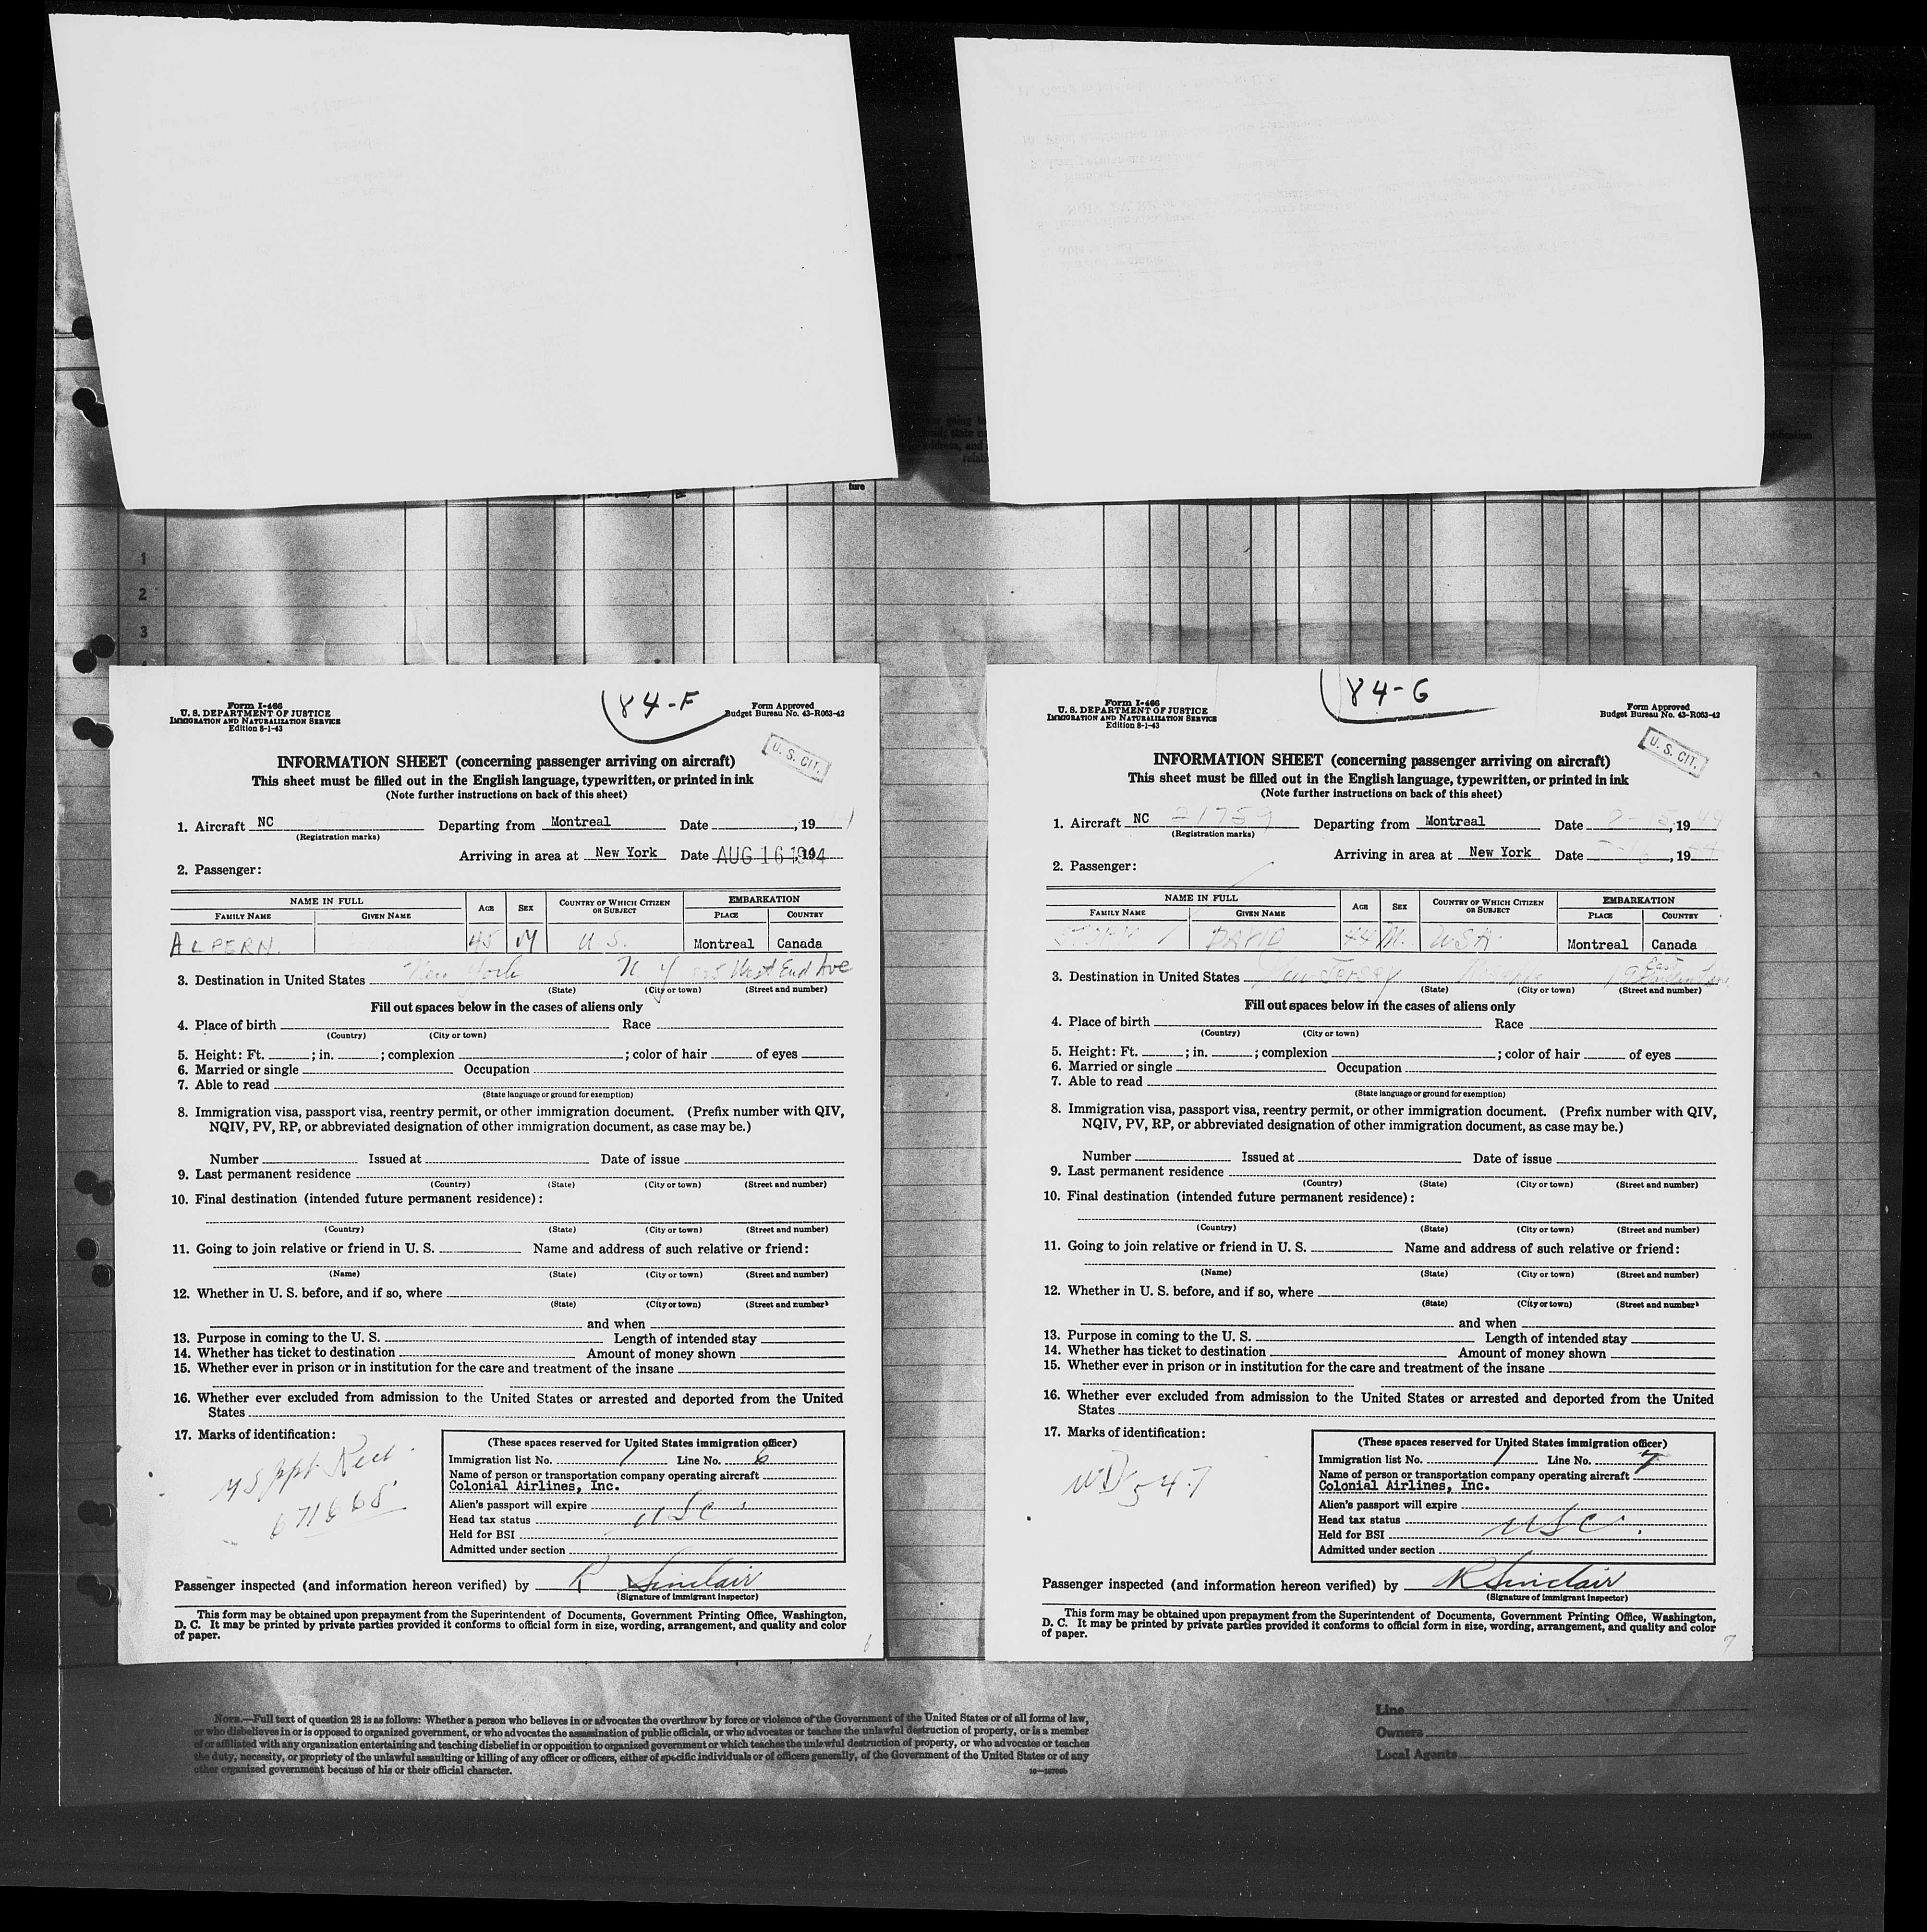 1
2
3
Form I-466
U. S. DEPARTMENT OF JUSTICE
IMMIGRATION AND NATURALIZATION SERVICE
Edition 8-1-43
84-F
Form Approved
Budget Bureau No. 43-R063-42
U. S. CIT.
INFORMATION SHEET (concerning passenger arriving on aircraft)
This sheet must be filled out in the English language, typewritten, or printed in ink
(Note further instructions on back of this sheet)
1. Aircraft NC Departing from Montreal Date , 19
(Registration marks)
Arriving in area at New York Date AUG 16 1944
2. Passenger:
NAME IN FULL AGE SEX COUNTRY OF WHICH CITIZEN OR SUBJECT EMBARKATION
FAMILY NAME GIVEN NAME PLACE COUNTRY
ALPERN. 45 M U.S. Montreal Canada
3. Destination in United States New York N.Y. West End Ave
(State) (City or town) (Street and number)
Fill out spaces below in the cases of aliens only
4. Place of birth Race
(Country) (City or town)
5. Height: Ft. ; in. ; complexion ; color of hair of eyes
6. Married or single Occupation
7. Able to read
(State language or ground for exemption)
8. Immigration visa, passport visa, reentry permit, or other immigration document. (Prefix number with QIV,
NQIV, PV, RP, or abbreviated designation of other immigration document, as case may be.)
Number Issued at Date of issue
9. Last permanent residence
(Country) (State) (City or town) (Street and number)
10. Final destination (intended future permanent residence):
(Country) (State) (City or town) (Street and number)
11. Going to join relative or friend in U. S. Name and address of such relative or friend:
(Name) (State) (City or town) (Street and number)
12. Whether in U. S. before, and if so, where
(State) (City or town) (Street and number)
and when
13. Purpose in coming to the U. S. Length of intended stay
14. Whether has ticket to destination Amount of money shown
15. Whether ever in prison or in institution for the care and treatment of the insane
16. Whether ever excluded from admission to the United States or arrested and deported from the United
States
17. Marks of identification:
(These spaces reserved for United States immigration officer)
Immigration list No. 1 Line No. 6
Name of person or transportation company operating aircraft
Colonial Airlines, Inc.
Alien's passport will expire
Head tax status USC
Held for BSI
Admitted under section
Passenger inspected (and information hereon verified) by R Sinclair
(Signature of immigrant inspector)
This form may be obtained upon prepayment from the Superintendent of Documents, Government Printing Office, Washington,
D. C. It may be printed by private parties provided it conforms to official form in size, wording, arrangement, and quality and color
of paper.
6
Form I-466
U. S. DEPARTMENT OF JUSTICE
IMMIGRATION AND NATURALIZATION SERVICE
Edition 8-1-43
84-G
Form Approved
Budget Bureau No. 43-R063-42
U. S. CIT.
INFORMATION SHEET (concerning passenger arriving on aircraft)
This sheet must be filled out in the English language, typewritten, or printed in ink
(Note further instructions on back of this sheet)
1. Aircraft NC 21759 Departing from Montreal Date , 19
(Registration marks)
Arriving in area at New York Date , 19
2. Passenger:
NAME IN FULL AGE SEX COUNTRY OF WHICH CITIZEN OR SUBJECT EMBARKATION
FAMILY NAME GIVEN NAME PLACE COUNTRY
DAVID 44 M. USA Montreal Canada
3. Destination in United States New Jersey East
(State) (City or town) (Street and number)
Fill out spaces below in the cases of aliens only
4. Place of birth Race
(Country) (City or town)
5. Height: Ft. ; in. ; complexion ; color of hair of eyes
6. Married or single Occupation
7. Able to read
(State language or ground for exemption)
8. Immigration visa, passport visa, reentry permit, or other immigration document. (Prefix number with QIV,
NQIV, PV, RP, or abbreviated designation of other immigration document, as case may be.)
Number Issued at Date of issue
9. Last permanent residence
(Country) (State) (City or town) (Street and number)
10. Final destination (intended future permanent residence):
(Country) (State) (City or town) (Street and number)
11. Going to join relative or friend in U. S. Name and address of such relative or friend:
(Name) (State) (City or town) (Street and number)
12. Whether in U. S. before, and if so, where
(State) (City or town) (Street and number)
and when
13. Purpose in coming to the U. S. Length of intended stay
14. Whether has ticket to destination Amount of money shown
15. Whether ever in prison or in institution for the care and treatment of the insane
16. Whether ever excluded from admission to the United States or arrested and deported from the United
States
17. Marks of identification:
(These spaces reserved for United States immigration officer)
Immigration list No. 1 Line No. 7
Name of person or transportation company operating aircraft
Colonial Airlines, Inc.
Alien's passport will expire
Head tax status USC.
Held for BSI
Admitted under section
Passenger inspected (and information hereon verified) by R Sinclair
(Signature of immigrant inspector)
This form may be obtained upon prepayment from the Superintendent of Documents, Government Printing Office, Washington,
D. C. It may be printed by private parties provided it conforms to official form in size, wording, arrangement, and quality and color
of paper.
7
NOTE.—Full text of question 28 is as follows: Whether a person who believes in or advocates the overthrow by force or violence of the Government of the United States or of all forms of law,
or who disbelieves in or is opposed to organized government, or who advocates the assassination of public officials, or who advocates or teaches the unlawful destruction of property, or is a member
of or affiliated with any organization entertaining and teaching disbelief in or opposition to organized government or which teaches the unlawful destruction of property, or who advocates or teaches
the duty, necessity, or propriety of the unlawful assaulting or killing of any officer or officers, either of specific individuals or of officers generally, of the Government of the United States or of any
other organized government because of his or their official character.
Line
Owners
Local Agents